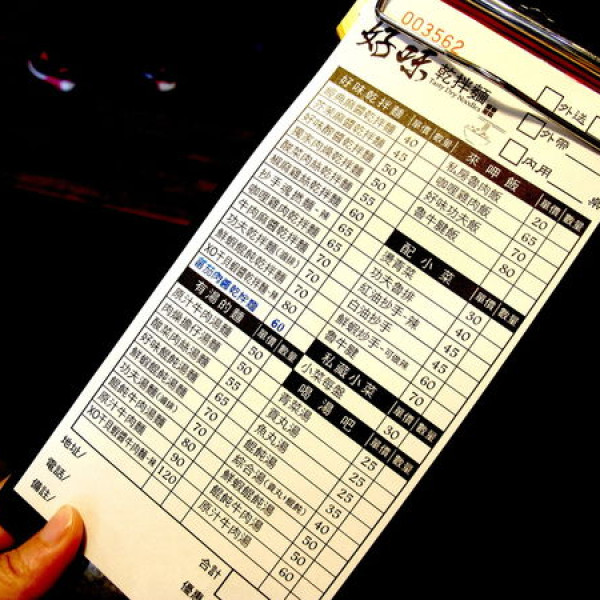 003562
好味 乾拌麵
Tasty Dry Noodles
外送
外帶
內用
好味乾拌麵 單價 數量
經典麻醬乾拌麵 40
芥末麻醬乾拌麵 45
好味酸醬乾拌麵 50
獨家肉燥乾拌麵 50
酸菜肉絲乾拌麵 55
椒麻雞絲乾拌麵 60
抄手魂撚麵-辣 65
咖哩雞肉乾拌麵 65
牛肉麻醬乾拌麵 70
功夫乾拌麵(滷排) 70
鮮蝦餛飩乾拌麵 70
XO干貝蝦醬乾拌麵-辣 80
蕃茄肉醬乾拌麵 60
有湯的麵 單價 數量
原汁牛肉湯麵 50
肉燥擔仔湯麵 50
酸菜肉絲湯麵 55
好味餛飩湯麵 65
鮮蝦餛飩湯麵 70
功夫湯麵(滷排) 70
餛飩牛肉湯麵 80
原汁牛肉麵 90
XO干貝蝦醬牛肉麵-辣 120
來呷飯 單價 數量
私房魯肉飯 20
咖哩雞肉飯 65
好味功夫飯 70
魯牛腱飯 80
配小菜 單價 數量
燙青菜 30
功夫魯排 40
紅油抄手-辣 45
白油抄手 45
鮮蝦抄手-可做辣 60
魯牛腱 70
私藏小菜 單價 數量
小菜每盤 30
喝湯吧 單價 數量
青菜湯 25
貢丸湯 25
魚丸湯 25
綜合湯(貢丸+餛飩) 35
鮮蝦餛飩湯 40
餛飩牛肉湯 50
原汁牛肉湯 60
地址/
電話/
備註/
合計
優惠